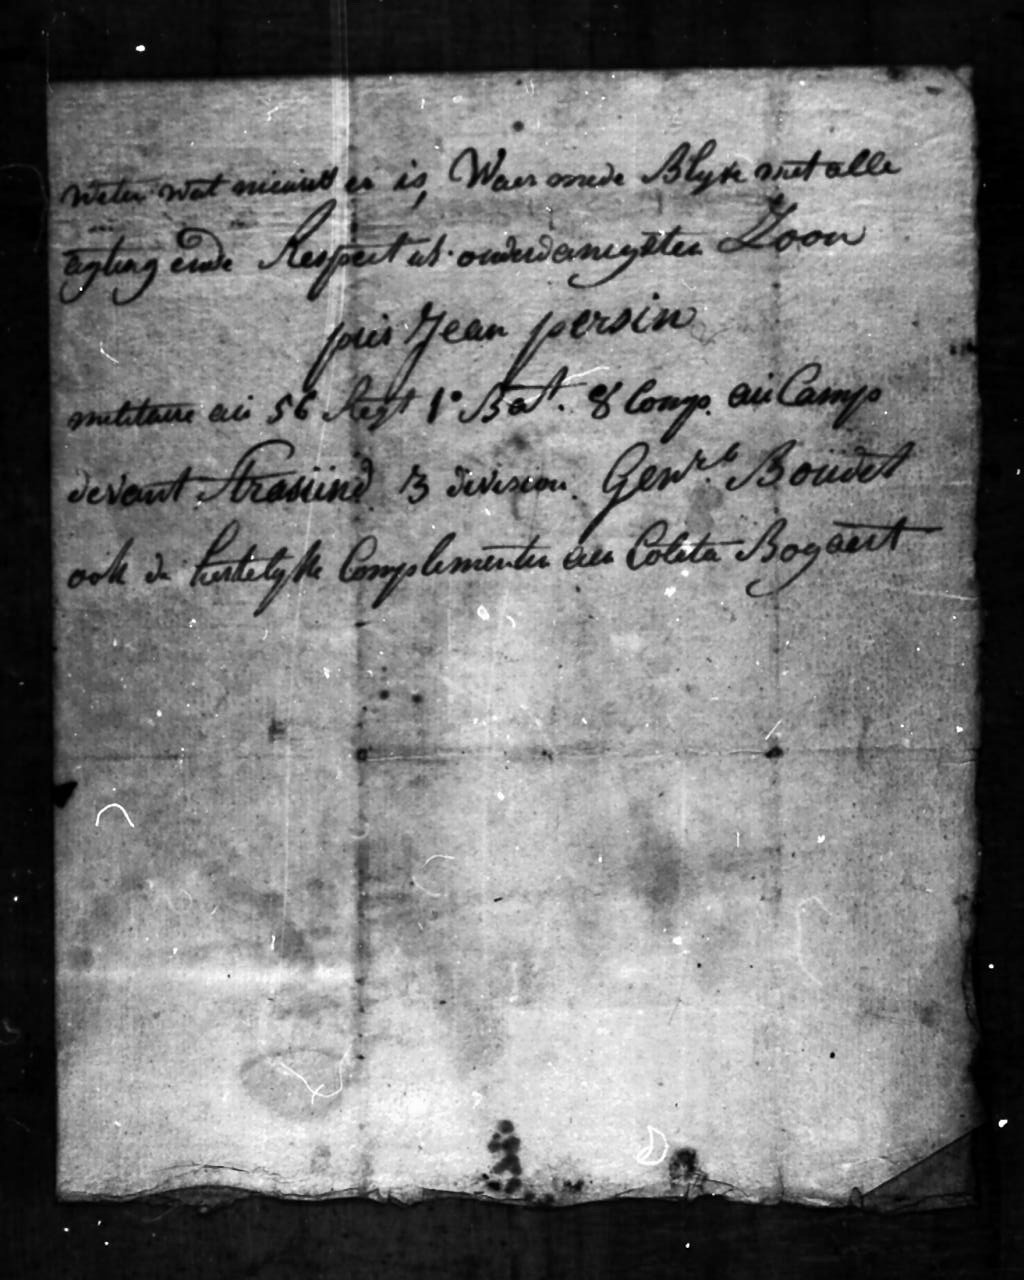 weten wat nieuws er is, Waer mede Blyve met alle
agting ende Respect ul. onderdanigsten Zoon
pier Jean persin
militaire au 56 Regt 1° Bat. 8 Comp. au Camp
devant Strasund 3 division Genrl Boudet
ook de hertelyke Complementen aen Coleta Bogaert